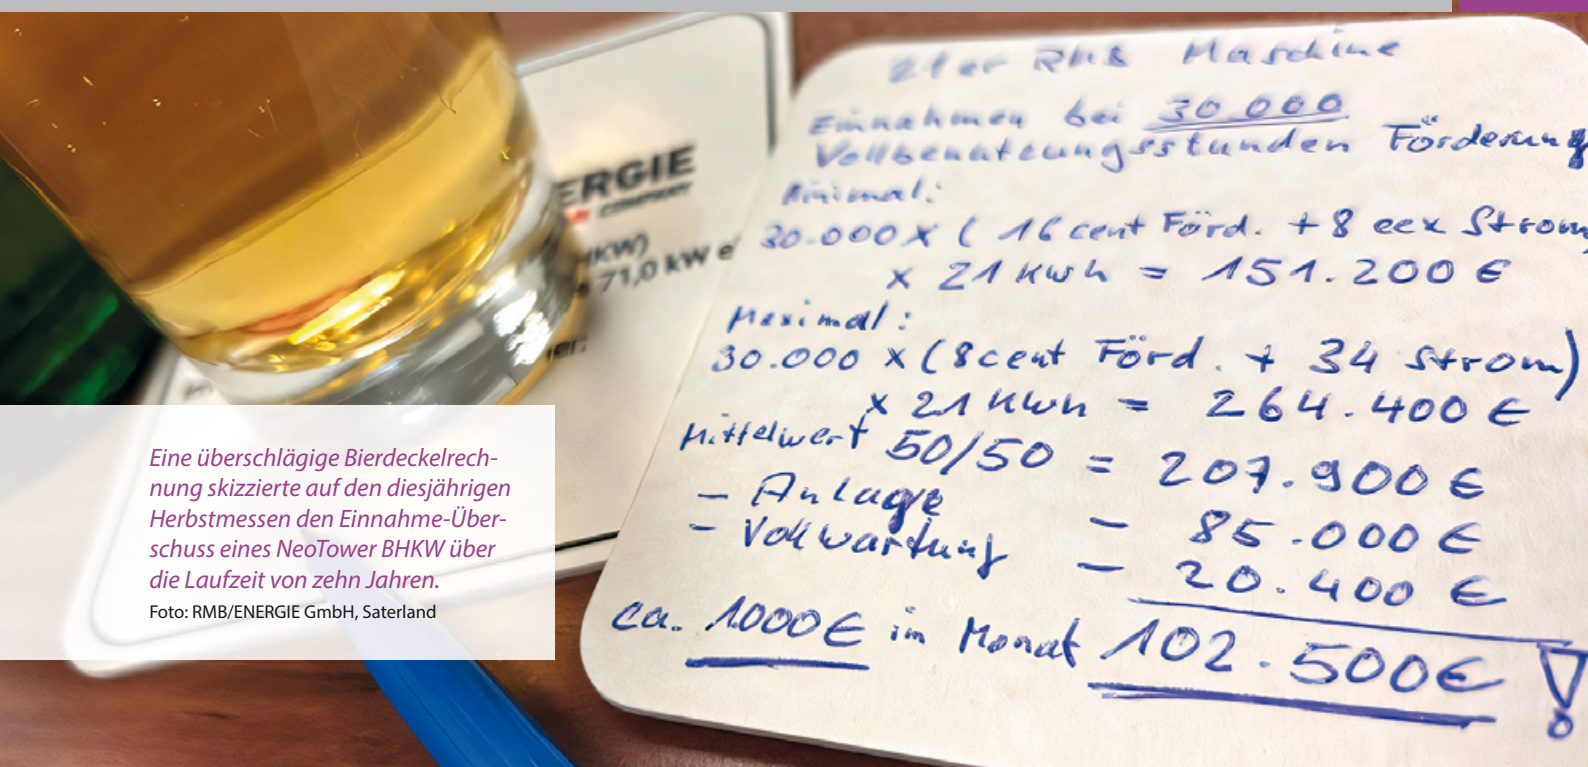 ERGIE
COMPANY
HKW)
71,0 kW e
21er RMB Maschine
Einnahmen bei 30.000
Vollbenutzungsstunden Förderung
Minimal:
30.000 x ( 16 cent Förd. + 8 eex Strom
x 21 kwh = 151.200 €
Maximal:
30.000 x (8cent Förd. + 34 Strom)
x 21 kwh = 264.400 €
Mittelwert 50/50 = 207.900 €
- Anlage - 85.000 €
- Vollwartung - 20.400 €
ca. 1000€ im Monat 102.500€ !
Eine überschlägige Bierdeckelrech-
nung skizzierte auf den diesjährigen
Herbstmessen den Einnahme-Über-
schuss eines NeoTower BHKW über
die Laufzeit von zehn Jahren.
Foto: RMB/ENERGIE GmbH, Saterland